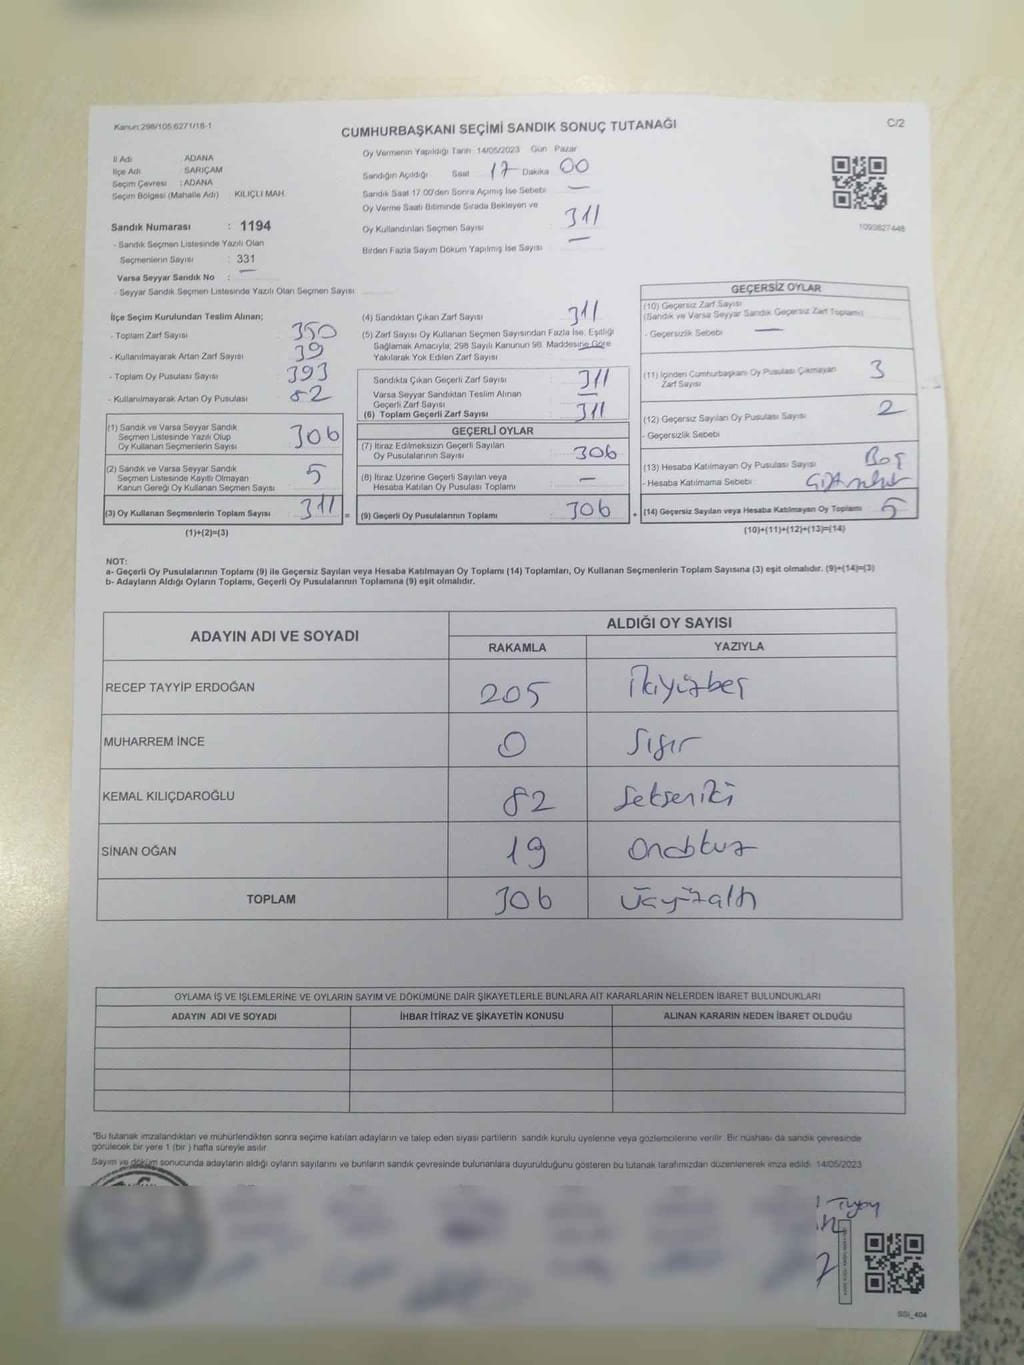 Kanun:298/105,6271/18-1
CUMHURBAŞKANI SEÇİMİ SANDIK SONUÇ TUTANAĞI
C/2
İl Adı ADANA
İlçe Adı SARIÇAM
Seçim Çevresi : ADANA
Seçim Bölgesi (Mahalle Adı) KILIÇLI MAH.
Sandık Numarası : 1194
- Sandık Seçmen Listesinde Yazılı Olan
Seçmenlerin Sayısı : 331
Varsa Seyyar Sandık No : —
- Seyyar Sandık Seçmen Listesinde Yazılı Olan Seçmen Sayısı
Oy Vermenin Yapıldığı Tarih 14/05/2023 Gün Pazar
Sandığın Açıldığı Saat 17 Dakika 00
Sandık Saat 17.00'den Sonra Açımış İse Sebebi —
Oy Verme Saati Bitiminde Sırada Bekleyen ve
Oy Kullandırılan Seçmen Sayısı 311
Birden Fazla Sayım Döküm Yapılmış İse Sayısı —
1093827448
İlçe Seçim Kurulundan Teslim Alınan;
- Toplam Zarf Sayısı 350
- Kullanılmayarak Artan Zarf Sayısı 39
- Toplam Oy Pusulası Sayısı 393
- Kullanılmayarak Artan Oy Pusulası 82
(1) Sandık ve Varsa Seyyar Sandık
Seçmen Listesinde Yazılı Olup
Oy Kullanan Seçmenlerin Sayısı 306
(2) Sandık ve Varsa Seyyar Sandık
Seçmen Listesinde Kayıtlı Olmayan
Kanun Gereği Oy Kullanan Seçmen Sayısı 5
(3) Oy Kullanan Seçmenlerin Toplam Sayısı 311 =
(1)+(2)=(3)
(4) Sandıktan Çıkan Zarf Sayısı 311
(5) Zarf Sayısı Oy Kullanan Seçmen Sayısından Fazla İse, Eşitliği
Sağlamak Amacıyla; 298 Sayılı Kanunun 98. Maddesine Göre
Yakılarak Yok Edilen Zarf Sayısı —
Sandıkta Çıkan Geçerli Zarf Sayısı 311
Varsa Seyyar Sandıktan Teslim Alınan
Geçerli Zarf Sayısı —
(6) Toplam Geçerli Zarf Sayısı 311
GEÇERLİ OYLAR
(7) İtiraz Edilmeksizin Geçerli Sayılan
Oy Pusulalarının Sayısı 306
(8) İtiraz Üzerine Geçerli Sayılan veya
Hesaba Katılan Oy Pusulası Toplamı —
(9) Geçerli Oy Pusulalarının Toplamı : 306 +
GEÇERSİZ OYLAR
(10) Geçersiz Zarf Sayısı
(Sandık ve Varsa Seyyar Sandık Geçersiz Zarf Toplamı)
- Geçersizlik Sebebi —
(11) İçinden Cumhurbaşkanı Oy Pusulası Çıkmayan
Zarf Sayısı 3
(12) Geçersiz Sayılan Oy Pusulası Sayısı 2
- Geçersizlik Sebebi
(13) Hesaba Katılmayan Oy Pusulası Sayısı Boş
- Hesaba Katılmama Sebebi
(14) Geçersiz Sayılan veya Hesaba Katılmayan Oy Toplamı 5
(10)+(11)+(12)+(13)=(14)
NOT:
a- Geçerli Oy Pusulalarının Toplamı (9) ile Geçersiz Sayılan veya Hesaba Katılmayan Oy Toplamı (14) Toplamları, Oy Kullanan Seçmenlerin Toplam Sayısına (3) eşit olmalıdır. (9)+(14)=(3)
b- Adayların Aldığı Oyların Toplamı, Geçerli Oy Pusulalarının Toplamına (9) eşit olmalıdır.
ADAYIN ADI VE SOYADI ALDIĞI OY SAYISI
RAKAMLA YAZIYLA
RECEP TAYYİP ERDOĞAN 205 İkiyüzbeş
MUHARREM İNCE 0 Sıfır
KEMAL KILIÇDAROĞLU 82 Sekseniki
SİNAN OĞAN 19 Ondokuz
TOPLAM 306 Üçyüzaltı
OYLAMA İŞ VE İŞLEMLERİNE VE OYLARIN SAYIM VE DÖKÜMÜNE DAİR ŞİKAYETLERLE BUNLARA AİT KARARLARIN NELERDEN İBARET BULUNDUKLARI
ADAYIN ADI VE SOYADI İHBAR İTİRAZ VE ŞİKAYETİN KONUSU ALINAN KARARIN NEDEN İBARET OLDUĞU
*Bu tutanak imzalandıktan ve mühürlendikten sonra seçime katılan adayların ve talep eden siyasi partilerin sandık kurulu üyelerine veya gözlemcilerine verilir. Bir nüshası da sandık çevresinde
görülecek bir yere 1 (bir ) hafta süreyle asılır.
Sayım ve döküm sonucunda adayların aldığı oyların sayılarını ve bunların sandık çevresinde bulunanlara duyurulduğunu gösteren bu tutanak tarafımızdan düzenlenerek imza edildi. 14/05/2023
SGİ_404